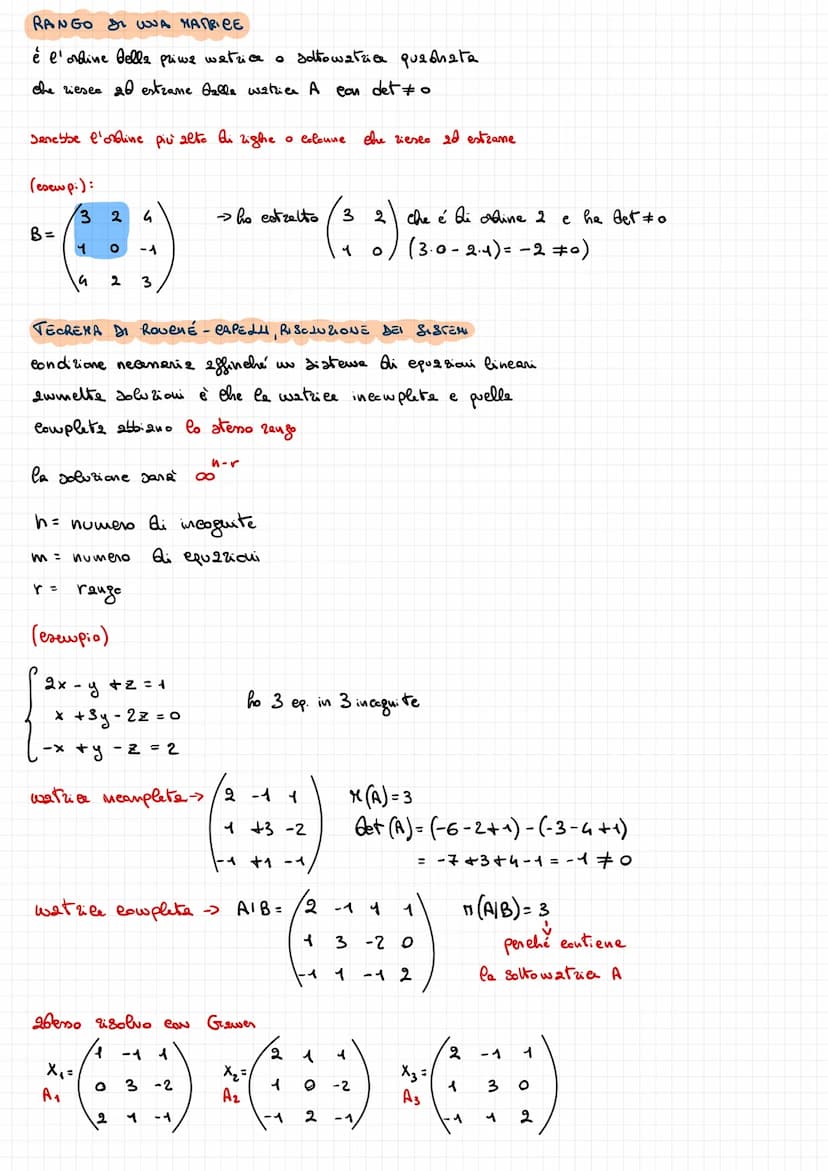 RANGO DI UNA MATRICE
é l'ordine della prima matrice o sottomatrice quadrata
che riesco ad estrarre dalla matrice A con det ≠ 0
sarebbe l'ordine più alto di righe o colonne che riesco ad estrarre
(esempi):
B = ( 3 2 4
1 0 -1
4 2 3 )
→ ho estratto ( 3 2
1 0 ) che é di ordine 2 e ha det ≠ 0
(3·0 - 2·1) = -2 ≠ 0)
TEOREMA DI ROUCHÉ - CAPELLI, RISOLUZIONE DEI SISTEMI
condizione necessaria affinché un sistema di equazioni lineari
ammetta soluzioni è che la matrice incompleta e quella
completa abbiano lo stesso rango
la soluzione sarà ∞^(n-r)
n = numero di incognite
m = numero di equazioni
r = rango
(esempio)
2x - y + z = 1
x + 3y - 2z = 0
-x + y - z = 2
ho 3 eq. in 3 incognite
matrice incompleta → ( 2 -1 1
1 +3 -2
-1 +1 -1 )
r(A) = 3
det(A) = (-6 - 2 + 1) - (-3 - 4 + 1)
= -7 + 3 + 4 - 1 = -1 ≠ 0
matrice completa → A|B = ( 2 -1 1 1
1 3 -2 0
-1 1 -1 2 )
r(A|B) = 3
perché contiene
la sottomatrice A
adesso risolvo con Cramer
X₁ = A₁ ( 1 -1 1
0 3 -2
2 1 -1 )
X₂ = A₂ ( 2 1 1
1 0 -2
-1 2 -1 )
X₃ = A₃ ( 2 -1 1
1 3 0
-1 1 2 )